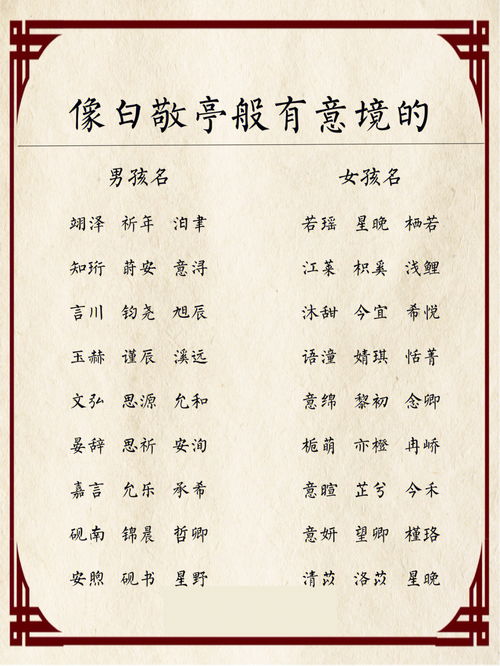 像白敬亭般有意境的
男孩名 女孩名
翊泽 祈年 泊聿 若瑶 星晚 栖若
知珩 蔚安 意浔 江莱 枳奚 浅鲤
言川 钧尧 旭辰 沐甜 今宜 希悦
玉赫 谨辰 溪远 语潼 婧琪 恬菁
文弘 思源 允和 意绵 黎初 念卿
晏辞 思祈 安洵 栀萌 亦橙 冉峤
嘉言 允乐 承希 意暄 芷兮 今禾
砚南 锦晨 哲卿 意妍 望卿 槿珞
安煦 砚书 星野 清苡 洛苡 星晚